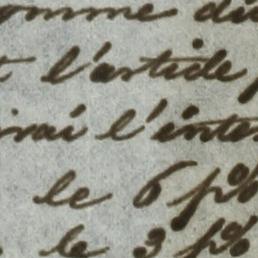 omme du
t l'article
irai l'inte
le 6 p%
le 3 p%